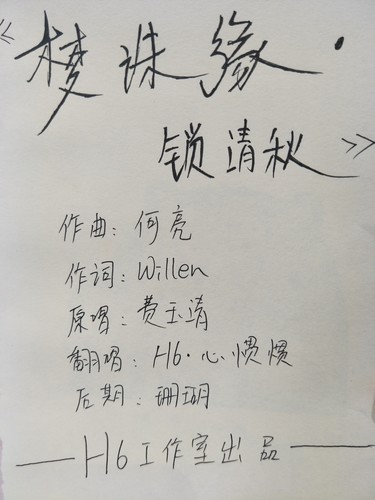 《梦诛缘·
锁清秋》
作曲：何亮
作词：Willen
原唱：费玉清
翻唱：H6·心惯惯
后期：珊玥
——H6工作室出品——